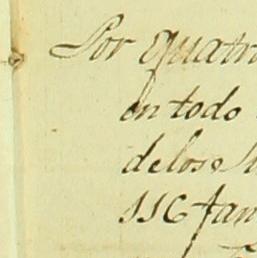 Por quatr
en todo
de los
116 fan